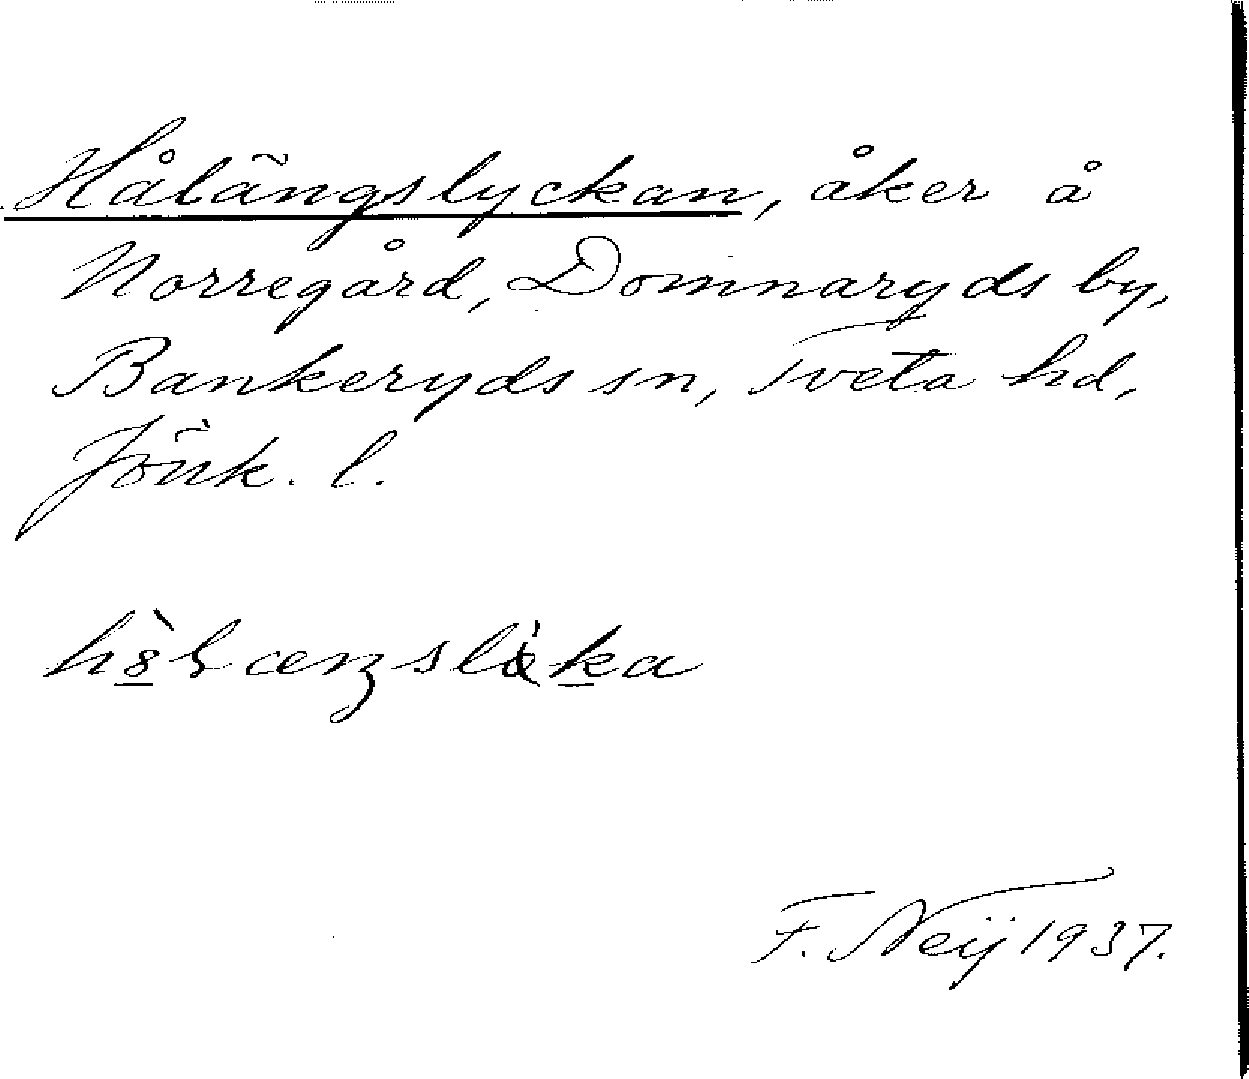 Hålängslyckan, åker å
Norregård, Domnaryds by,
Bankeryds sn, Tveta hd,
Jönk. l.
F. Neij 1937.